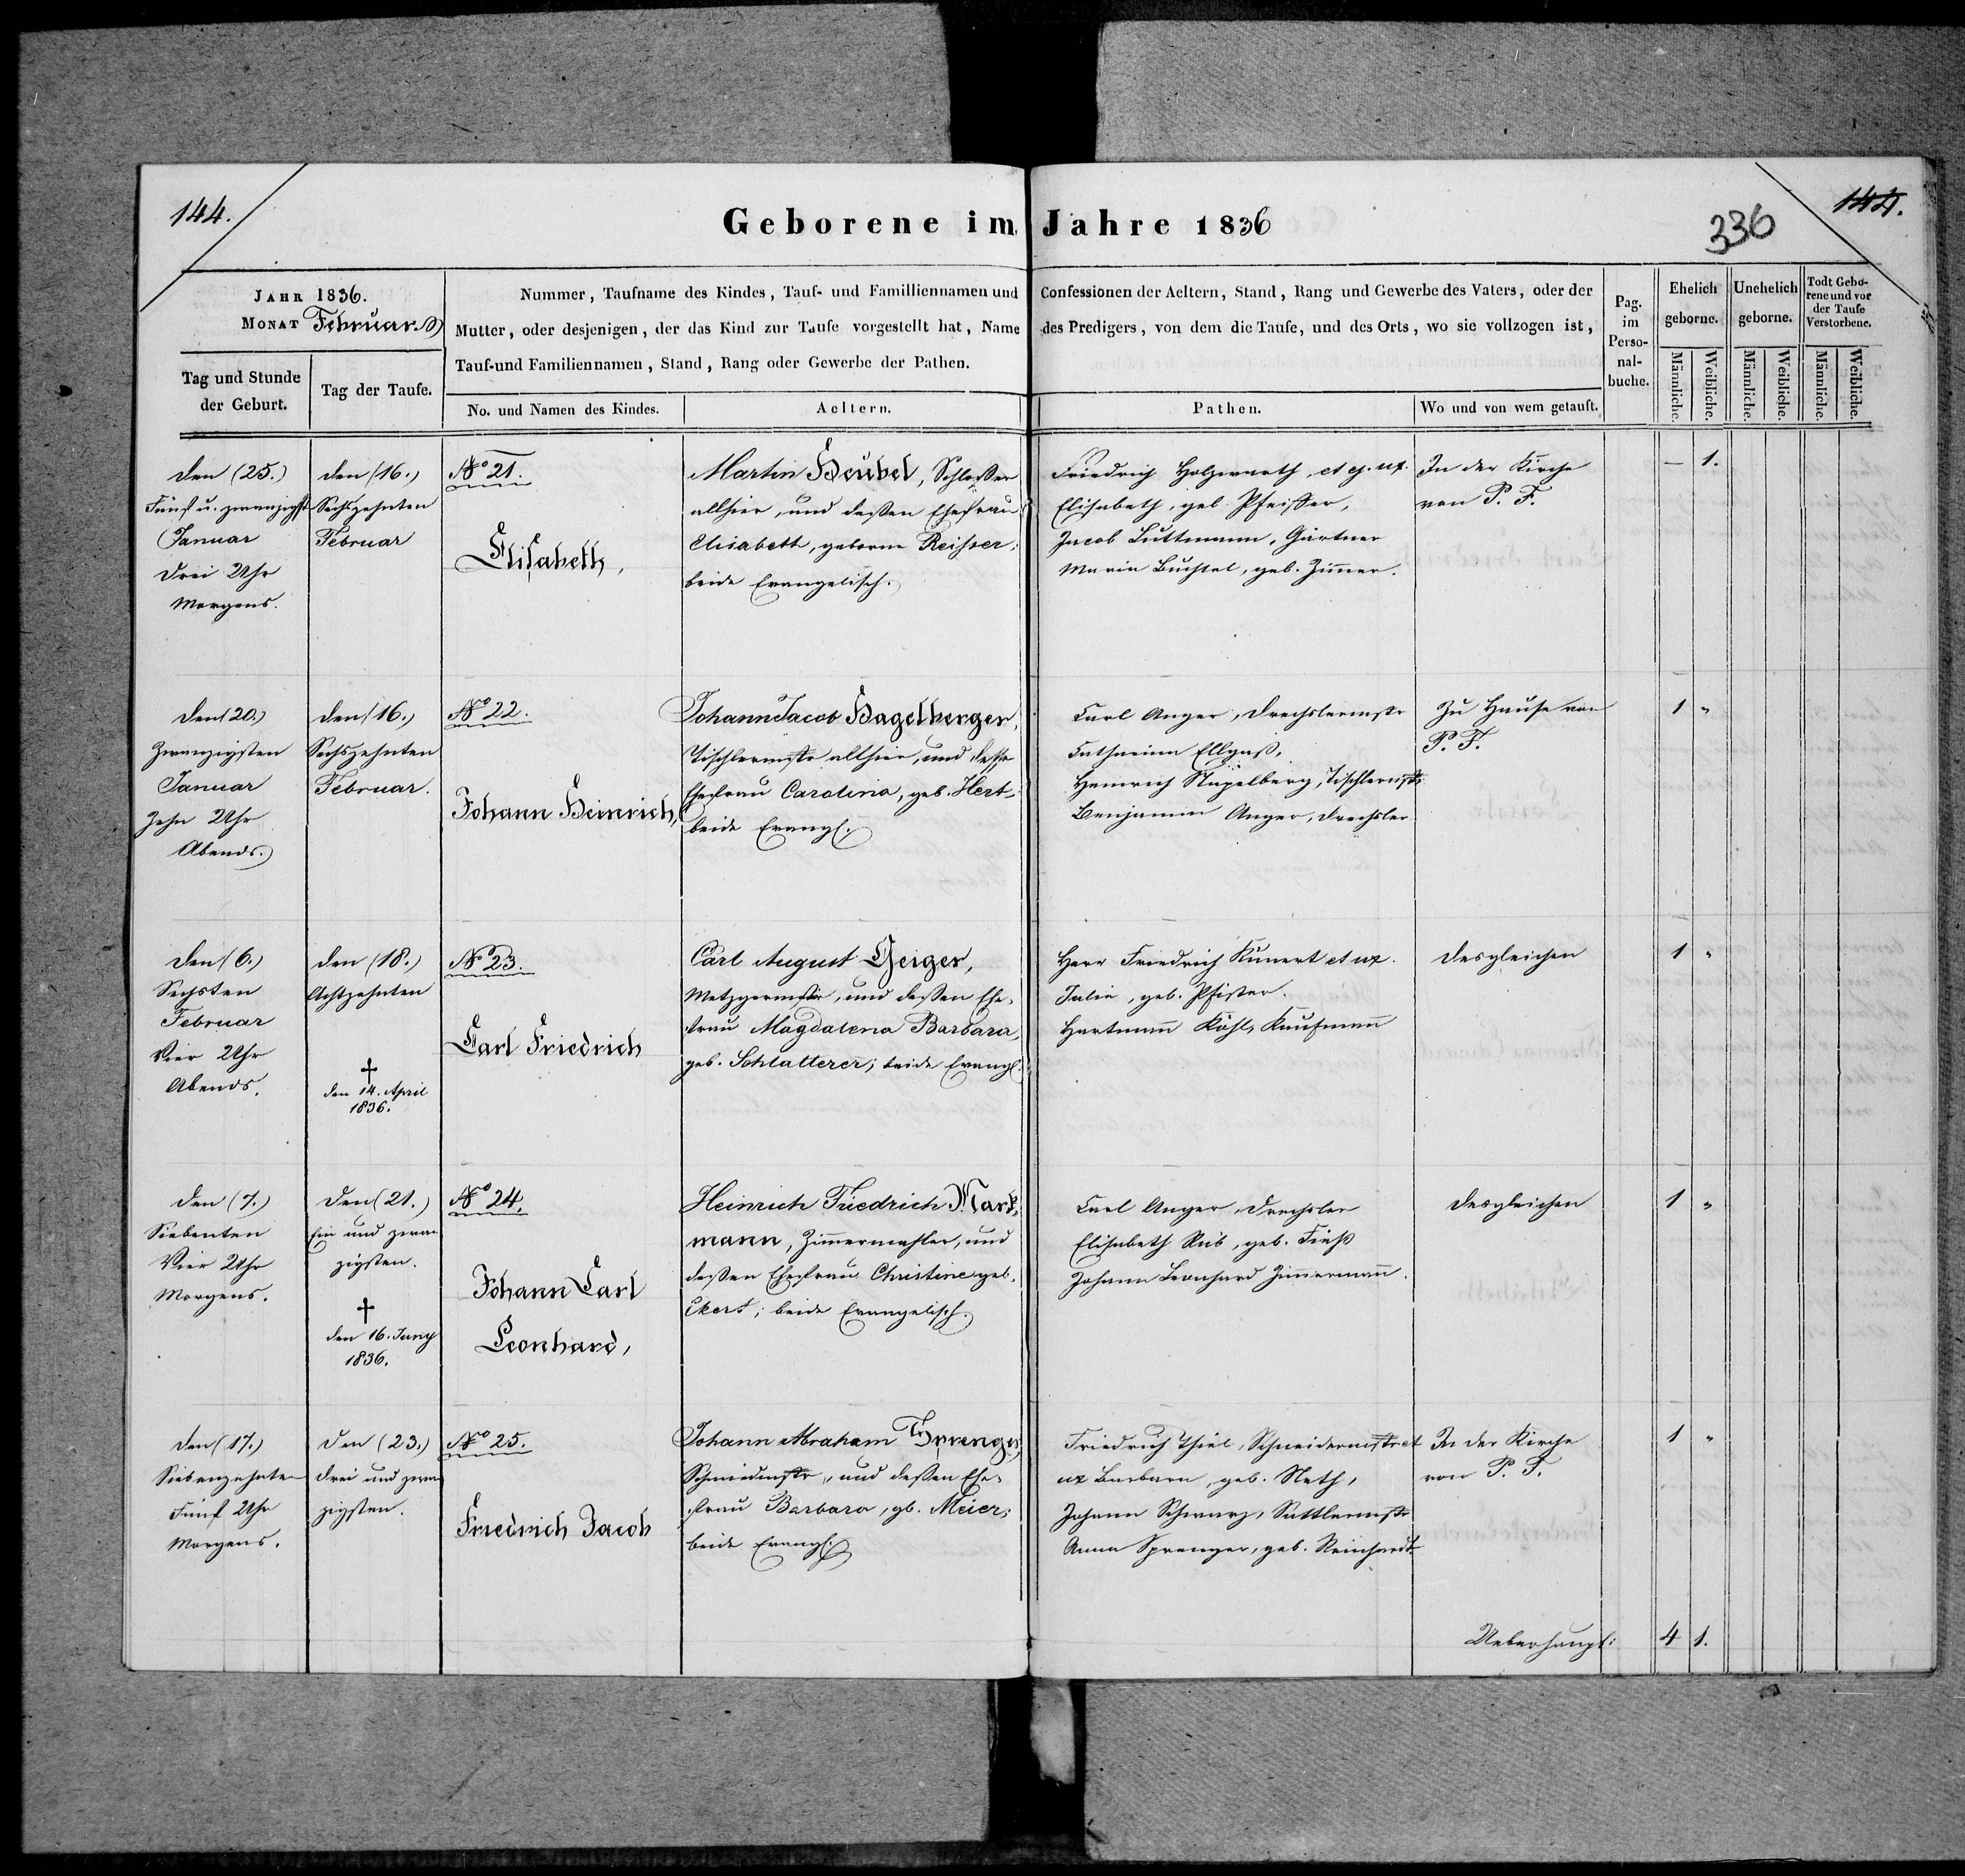 144.
144.
336
Geborene im Jahre 1836
JAHR 1836.
MONAT Februar.
Nummer, Taufname des Kindes, Tauf- und Familliennamen und Confessionen der Aeltern, Stand, Rang und Gewerbe des Vaters, oder der
Mutter, oder desjenigen, der das Kind zur Taufe vorgestellt hat, Name des Predigers, von dem die Taufe, und des Orts, wo sie vollzogen ist,
Tauf-und Familiennamen, Stand, Rang oder Gewerbe der Pathen.
Tag und Stunde
der Geburt.
Tag der Taufe.
No. und Namen des Kindes.
Aeltern.
Pathen.
Wo und von wem getauft.
Pag.
im
Perso-
nal-
buche.
Ehelich
geborne.
Unehelich
geborne.
Todt Gebo-
rene und vor
der Taufe
Verstorbene.
Männliche.
Weibliche.
Männliche.
Weibliche.
Männliche.
Weibliche.
den (25.)
Fünf u. zwanzigst
Januar
Drei Uhr
Morgens.
den (16.)
Sechszehnten
Februar
No 21.
Elisabeth,
Martin Heubel, Schloßer
allhier, und deßen Ehefrau
Elisabeth, geborne Reisser;
beide Evangelisch.
Friedrich Holzwarth et ej. ux.
Elisabeth, geb. Pfeiffer,
Jacob Luttmann, Gärtner
Maria Buchtel, geb. Zimmer.
In der Kirche
von P. F.
— 1.
den (20.)
Zwanzigsten
Januar
Zehn Uhr
Abends.
den (16.)
Sechszehnten
Februar.
No 22.
Johann Heinrich,
Johann Jacob Hagelberger,
Tischlermstr allhier, und desse
Ehefrau Carolina, geb. Hert
beide Evangl.
Carl Anger, Drechslermstr
Catharina Ellgaß,
Heinrich Stüpelberg, Tischlermstr
Benjamin Anger, Drechsler
Zu Hause von
P. F.
1 "
den (6.)
Sechsten
Februar
Vier Uhr
Abends.
den (18.)
Achtzehnten
†
den 14. April
1836.
No 23.
Carl Friedrich
Carl August Geiger,
Metzgermstr, und deßen Ehe-
frau Magdalena Barbara,
geb. Schlatterer; beide Evangl.
Herr Friedrich Kunert et ux.
Julie, geb. Pfister.
Hartmann Köhl, Kaufmann
desgleichen
1 "
den (7.)
Siebenten
Vier Uhr
Morgens.
den (21.)
Ein und zwan
zigsten.
†
den 16. Juny
1836.
No 24.
Johann Carl
Leonhard,
Heinrich Friedrich Mark-
mann, Zimmermahler, und
deßen Ehefrau Christine geb.
Ekert; beide Evangelisch.
Carl Anger, Drechsler
Elisabeth Rub, geb. Fieß
Johann Leonhard Zimmermann.
desgleichen
1 "
den (17.)
Siebenzehnten
Fünf Uhr
Morgens.
den (23.)
drei und zwan
zigsten.
No 25.
Friedrich Jacob
Johann Abraham Sprenger,
Schmiedmstr, und deßen Ehe-
frau Barbara, gb. Meier;
beide Evangl.
Friedrich Thiel, Schneidermstr et
ux Barbara, geb. Neth,
Johann Schwarz, Sattlermstr
Anna Sprenger, geb. Reinhardt
In der Kirche
von P. F.
1 "
Ueberhaupt: 4 1.